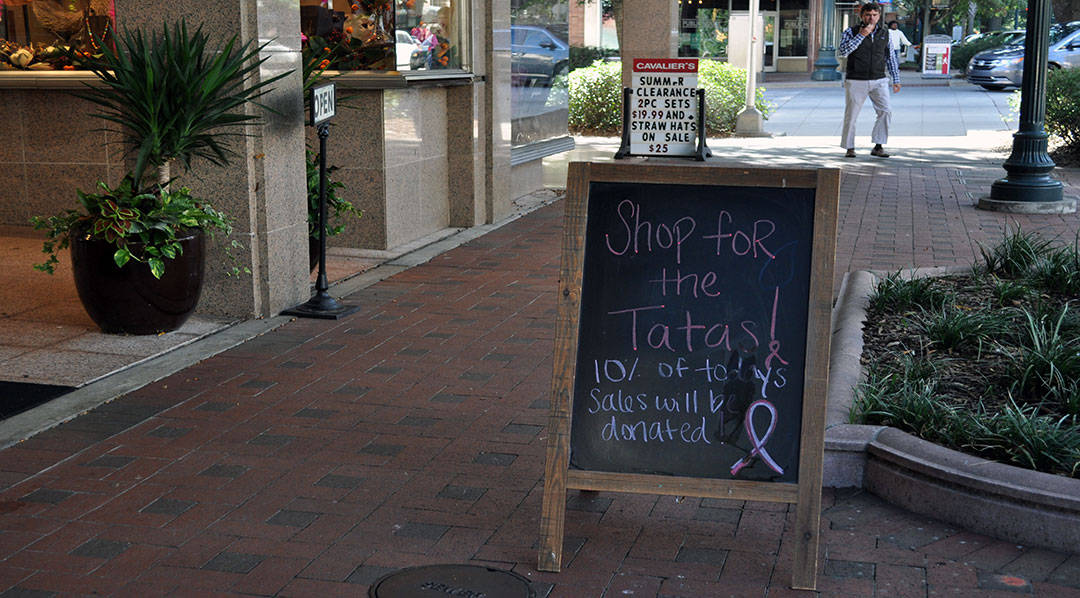 OPEN
CAVALIER'S
SUMMER
CLEARANCE
2PC SETS
$19.99 AND
STRAW HATS
ON SALE
$25
Shop foR
the
Tatas!
10% of todays
Sales will be
donated!